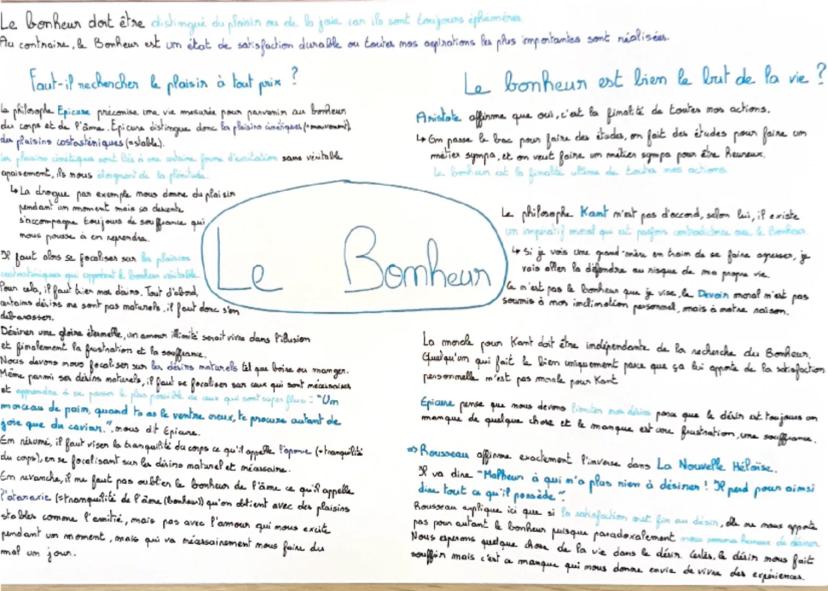 Le bonheur doit être distingué du plaisir ou de la joie car ils sont toujours éphémères
Au contraire, le Bonheur est un état de satisfaction durable ou toutes nos aspirations les plus importantes sont réalisées.
Faut-il rechercher le plaisir à tout prix ?
Le philosophe Epicure préconise une vie mesurée pour parvenir au bonheur
du corps et de l'âme. Epicure distingue donc les plaisirs cinétiques (=mouvement)
des plaisirs catastématiques (=stable).
Les plaisirs cinétiques sont liés à une certaine forme d'excitation sans véritable
apaisement, ils nous éloignent de la plénitude.
↳ La drogue par exemple nous donne du plaisir
pendant un moment mais sa descente
s'accompagne toujours de souffrance qui
nous pousse à en reprendre.
Il faut alors se focaliser sur les plaisirs
qui apportent le bonheur véritable
Pour cela, il faut bien nos désirs. Tout d'abord,
certains désirs ne sont pas naturels, il faut donc s'en
débarasser.
Désirer une gloire éternelle, un amour illimité serait vivre dans l'illusion
et finalement la frustration et la souffrance.
Nous devons nous focaliser sur les désirs naturels tel que boire ou manger.
Même parmi ses désirs naturels, il faut se focaliser sur ceux qui sont nécessaires
et apprendre à se passer le plus possible de ceux qui sont superflus : "Un
morceau de pain, quand tu as le ventre creux, te procure autant de
joie que du caviar.", nous dit Epicure.
En résumé, il faut viser la tranquilité du corps ce qu'il appelle l'aponie (=tranquilité
du corps), en se focalisant sur les désirs naturel et nécessaire.
En revanche, il ne faut pas oublier le bonheur de l'âme ce qu'il appelle
l'ataraxie (=tranquilité de l'âme (bonheur)) qu'on obtient avec des plaisirs
stables comme l'amitié, mais pas avec l'amour qui nous excite
pendant un moment, mais qui va nécessairement nous faire du
mal un jour.
Le Bonheur
Le bonheur est bien le but de la vie ?
Aristote affirme que oui, c'est la finalité de toutes nos actions.
↳ On passe le bac pour faire des études, on fait des études pour faire un
métier sympa, et on veut faire un métier sympa pour être heureux.
Le bonheur est la finalité ultime de toutes nos actions
Le philosophe Kant n'est pas d'accord, selon lui, il existe
un impératif moral qui est parfois contradictoire avec le Bonheur
↳ Si je vois une grand-mère en train de se faire agresser, je
vais aller la défendre au risque de ma propre vie.
Ce n'est pas le bonheur que je vise, le Devoir moral n'est pas
soumis à mon inclination personnel, mais à notre raison.
La morale pour Kant doit être indépendante de la recherche du Bonheur.
Quelqu'un qui fait le bien uniquement parce que ça lui apporte de la satisfaction
personnelle n'est pas morale pour Kant
Epicure pense que nous devons limiter nos désirs parce que le désir est toujours un
manque de quelque chose et le manque est une frustration, une souffrance.
⇒ Rousseau affirme exactement l'inverse dans La Nouvelle Héloïse.
Il va dire "Malheur à qui n'a plus rien à désirer ! Il perd pour ainsi
dire tout ce qu'il possède".
Rousseau explique ici que si la satisfaction met fin au désir, elle ne nous apporte
pas pour autant le bonheur puisque paradoxalement nous sommes heureux de désirer
Nous esperons quelque chose de la vie dans le désir. Certes, le désir nous fait
souffrir mais c'est ce manque qui nous donne envie de vivre des expériences.